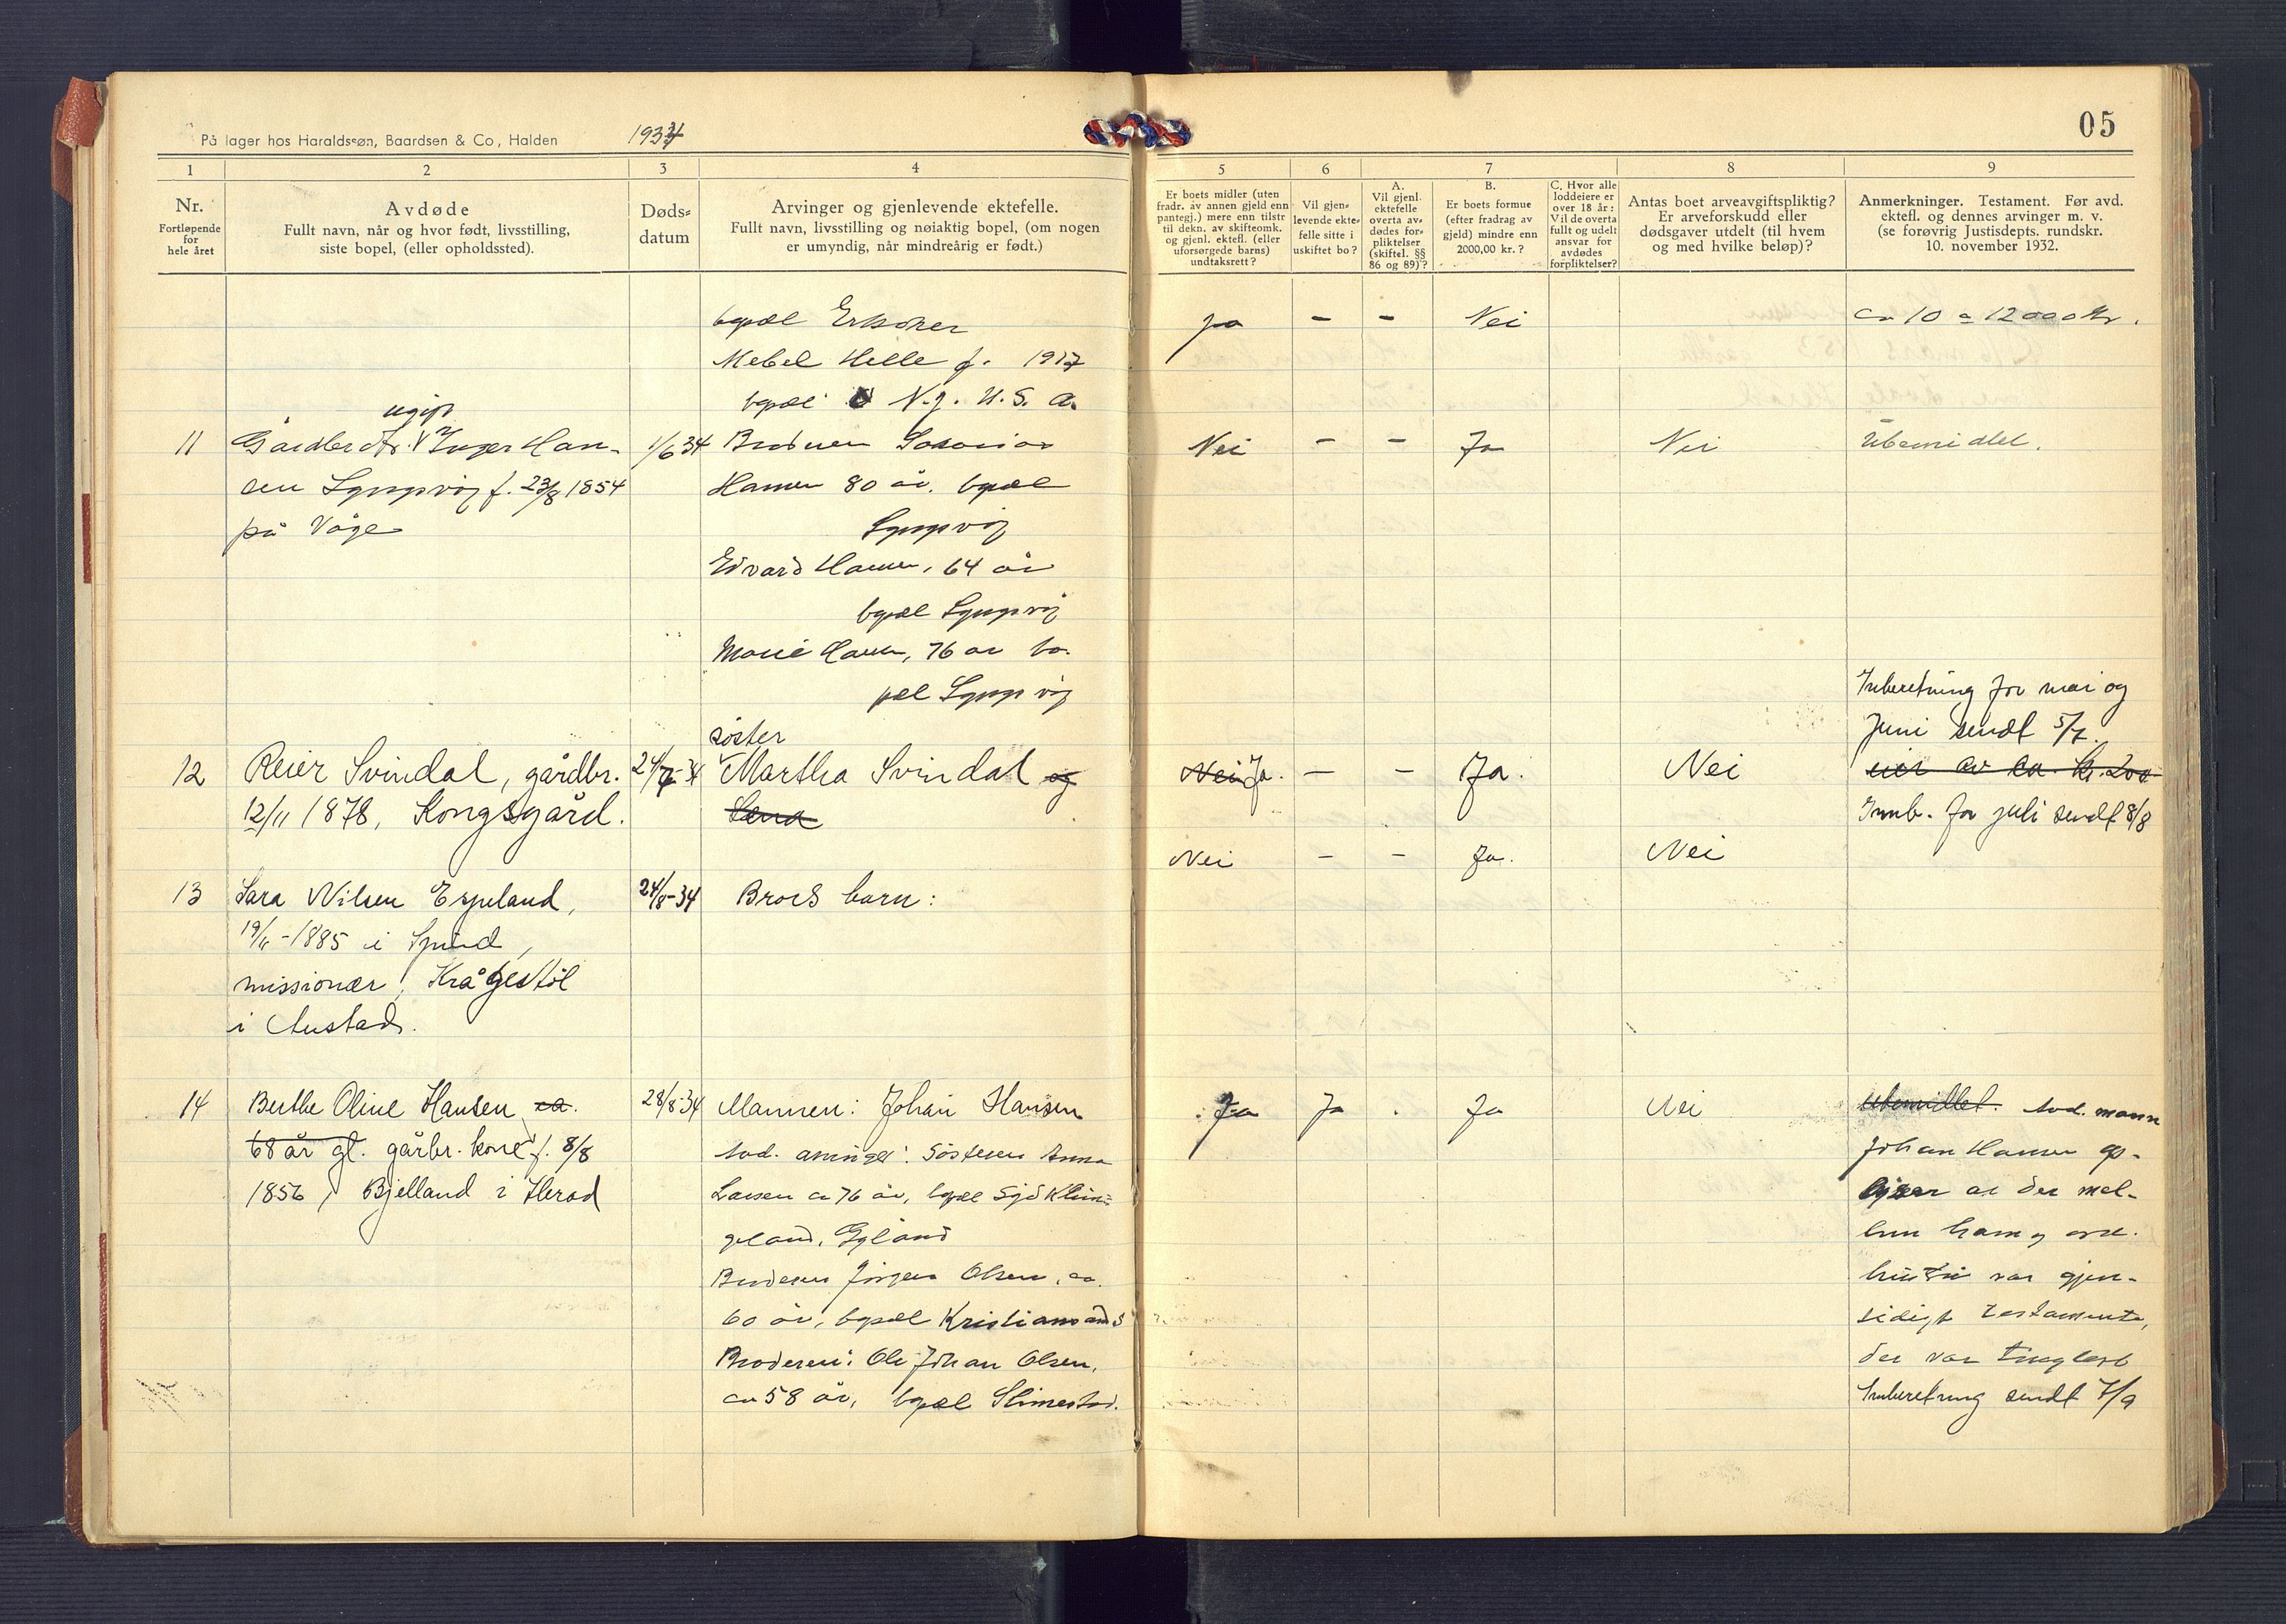 På lager hos Haraldssøn, Baardsen & Co, Halden 1934
05
1 2 3 4 5 6 7 8 9
Nr.
Fortløpende
for
hele året
Avdøde
Fullt navn, når og hvor født, livsstilling,
siste bopel, (eller opholdssted).
Døds-
datum
Arvinger og gjenlevende ektefelle.
Fullt navn, livsstilling og nøiaktig bopel, (om nogen
er umyndig, når mindreårig er født.)
Er boets midler (uten
fradr. av annen gjeld enn
pantegj.) mere enn tilstr.
til dekn. av skifteomk.
og gjenl. ektefl. (eller
uforsørgede barns)
undtaksrett?
Vil gjen-
levende ekte-
felle sitte i
uskiftet bo?
A.
Vil gjenl.
ektefelle
overta av-
dødes for-
pliktelser
(skiftel. §§
86 og 89)?
B.
Er boets formue
(efter fradrag av
gjeld) mindre enn
2000,00 kr.?
C. Hvor alle
loddeiere er
over 18 år:
Vil de overta
fullt og udelt
ansvar for
avdødes
forpliktelser?
Antas boet arveavgiftspliktig?
Er arveforskudd eller
dødsgaver utdelt (til hvem
og med hvilke beløp)?
Anmerkninger. Testament. Før avd.
ektefl. og dennes arvinger m. v.
(se forøvrig Justisdepts. rundskr.
10. november 1932.
bopæl
Ja - - Nei ca 10 a 12000 kr.
Mebel Helle f. 1917
bopæl N.J. U.S.A.
ugift
11 Inger Han- 1/6 34 Broderen Nei - - Ja Nei Ubemidlet.
sen Lyngsvåg f. 23/8 1854 Hansen 80 år. bopæl
på Våge Lyngsvåg
Edvard Hansen, 64 år
bopæl Lyngsvåg
Marie Hansen, 76 år bo-
pæl Lyngsvåg
Inberetning for mai og
juni sendt 5/7.
søster
12 Reier Svindal, gårdbr. 24/7-34 Martha Svindal og Nei Ja. - - Ja. Nei eier av ca. kr. 200
12/11 1878, Kongsgård. Lena Innb. for juli sendt 8/8
Nei - - Ja. Nei
13 Sara Nilsen Espeland, 24/8-34 Brors barn:
19/11-1885 i Spind,
missionær, Krågestøl
i Austad.
14 Berthe Oline Hansen ca. 28/8-34 Mannen: Johan Hansen Ja Ja . Ja Nei Ubemidlet. Avd. mann
68 år gl. gårbr. kone f. 8/8 Avd. arvinger: Søsteren Anna Johan Hansen op-
1856, Bjelland i Herad Larsen ca 76 år, bopæl at der mel-
geland, Gyland lem ham og avd.
Broderen Jørgen Olsen, ca. hustru var gjen-
60 år, bopæl Kristiansand S sidigt testamente,
Broderen: Ole Johan Olsen, der var tinglest
ca 58 år, bopæl Slimestad. Inberetning sendt 7/9